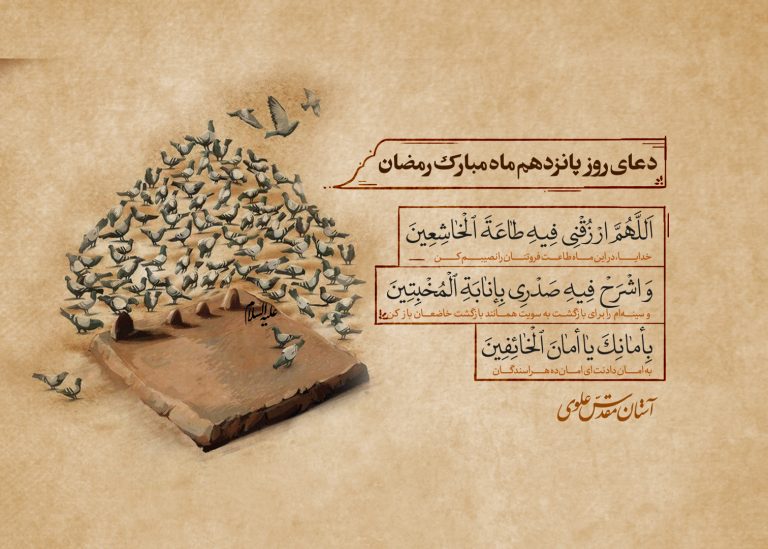 دعای روز پانزدهم ماه مبارک رمضان
اَللَّهُمَّ ارْزُقْنِی فِیهِ طاعَةَ الْخاشِعِینَ
خدایا، در این ماه طاعت فروتنان را نصیبم کن
وَ اشْرَحْ فِیهِ صَدْرِی بِإِنابَةِ الْمُخْبِتِینَ
و سینه‌ام را برای بازگشت به سویت همانند بازگشت خاضعان باز کن
بِأَمانِكَ یا أَمانَ الْخائِفِینَ
به امان دادنت ای امان‌ده هراسندگان
آستان مقدّس علوی
علیه السلام